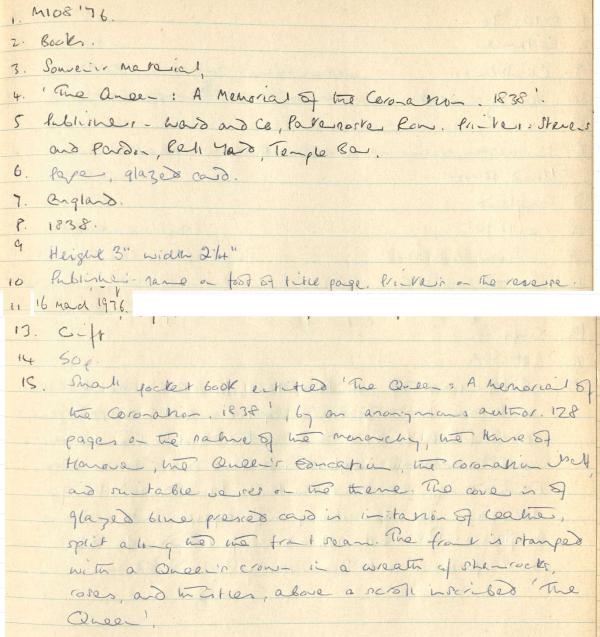 1. M108 '76.
2. Books.
3. Souvenir material,
4. 'The Queen: A Memorial of the Coronation. 1838'.
5 Publishers - Ward and Co, Paternoster Row. Printers: Stevens
and Pardon, Bell Yard, Temple Bar.
6. Paper, glazed card.
7. England.
8. 1838.
9 Height 3" width 2¼"
10 Publisher's name on foot of title page. Printer's on the reverse.
11 16 March 1976.
13. Gift
14 50p.
15. Small pocket book entitled 'The Queen: A Memorial of
the Coronation, 1838', by an anonymous author. 128
pages on the nature of the monarchy, the House of
Hanover, the Queen's Education, the coronation itself,
and suitable verses on the theme. The cover is of
glazed blue pressed card in imitation of leather,
split along the front seam. The front is stamped
with a Queen's crown in a wreath of shamrocks,
roses, and thistles, above a scroll inscribed 'The
Queen'.